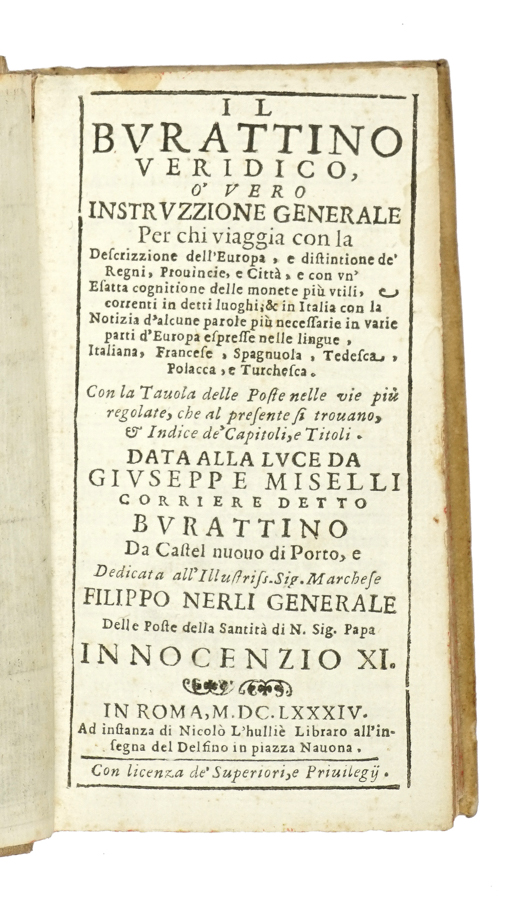 IL
BVRATTINO
VERIDICO,
O' VERO
INSTRVZZIONE GENERALE
Per chi viaggia con la
Deſcrizzione dell'Europa, e diſtintione de'
Regni, Prouincie, e Città, e con vn'
Eſatta cognitione delle monete più vtili, e
correnti in detti luoghi; & in Italia con la
Notizia d'alcune parole più neceſſarie in varie
parti d'Europa eſpreſſe nelle lingue,
Italiana, Franceſe, Spagnuola, Tedeſca,
Polacca, e Turcheſca.
Con la Tauola delle Poſte nelle vie più
regolate, che al preſente ſi trouano,
& Indice de' Capitoli, e Titoli.
DATA ALLA LVCE DA
GIVSEPPE MISELLI
CORRIERE DETTO
BVRATTINO
Da Caſtel nuouo di Porto, e
Dedicata all'Illuſtriſs. Sig. Marcheſe
FILIPPO NERLI GENERALE
Delle Poſte della Santità di N. Sig. Papa
INNOCENZIO XI.
IN ROMA, M.DC.LXXXIV.
Ad inſtanza di Nicolò L'hulliè Libraro all'in-
ſegna del Delfino in piazza Nauona.
Con licenza de' Superiori, e Priuilegij.